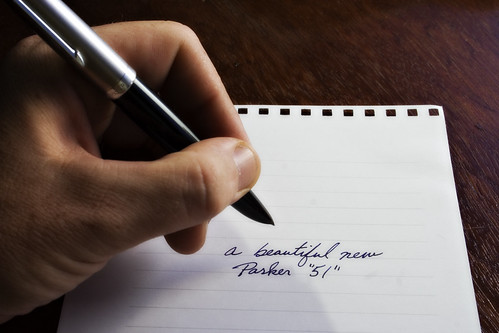 a beautiful new
Parker "51"